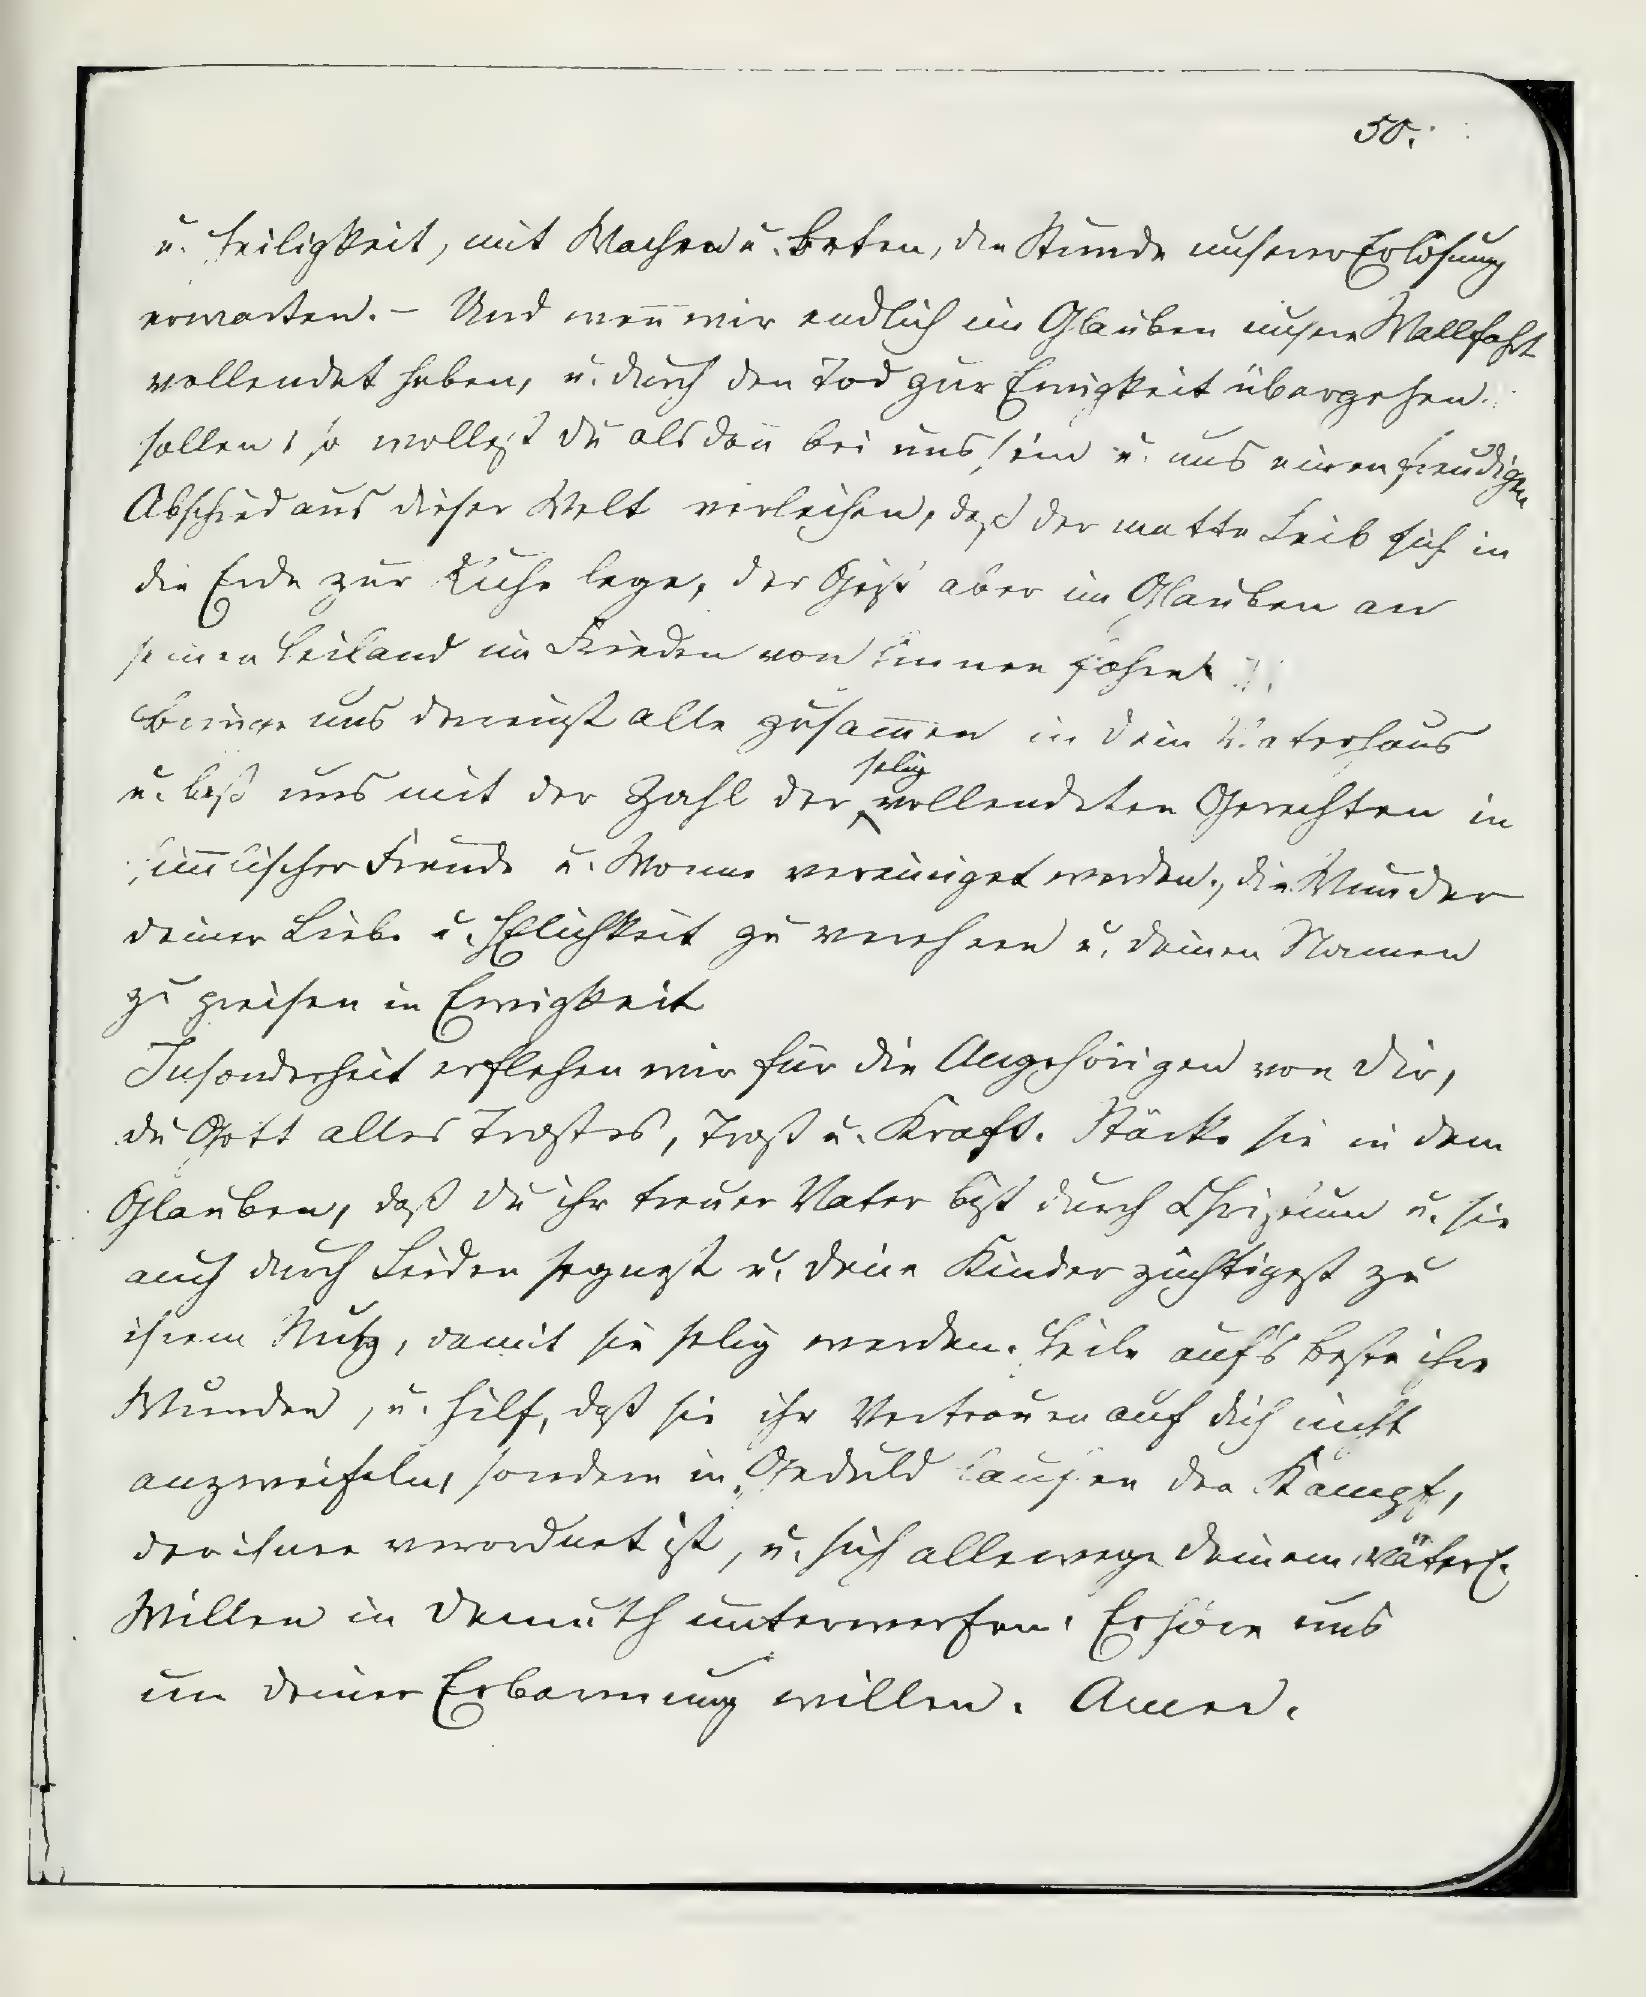 50.
u. Heiligkeit, mit Wachen u. Beten, die Stunde unserer Erlösung
erwarten. – Und wen̄ wir endlich im Glauben unsere Wallfahrt
vollendet haben, u. durch den Tod zur Ewigkeit übergehen
sollen, so wollest du alsdan̄ bei uns sein u. uns einen freudigen
Abschied aus dieser Welt verleihen, daß der matte Leib sich in
die Erde zur Ruhe lege, der Geist aber im Glauben an
seinen Heiland im Frieden von hinnen fahre
Bringe uns dereinst alle zusam̄en in dein Vaterhaus
u. laß uns mit der Zahl der selig vollendeten Gerechten in
him̄lischer Freude u. Wonne vereiniget werden, die Wunder
deiner Liebe u. Hlichkeit zu verehren u. deinen Namen
zu preisen in Ewigkeit
Insonderheit erflehen wir für die Angehörigen von dir,
du Gott alles Trostes, Trost u. Kraft. Stärke sie in dem
Glauben, daß du ihr treuer Vater bist durch Christum u. sie
auch durch Leiden segnest u. deine Kinder züchtigest zu
ihrem Nutz, damit sie selig werden. Heile aufs beste ihre
Wunden, u. hilf, daß sie ihr Vertrauen auf dich nicht
anzweifeln, sondern in Geduld laufen den Kampf,
der ihnen verordnet ist, u. sich allewege deinem väterl.
Willen in Demuth unterwerfen. Erhöre uns
um deiner Erbarmung willen. Amen.